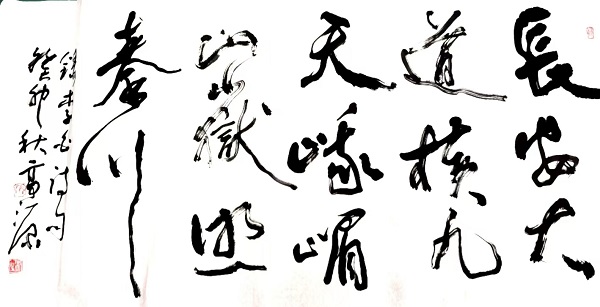 長安大
道横九
天峨嵋
山嶽照
秦川
錄李白詩句
癸卯秋高